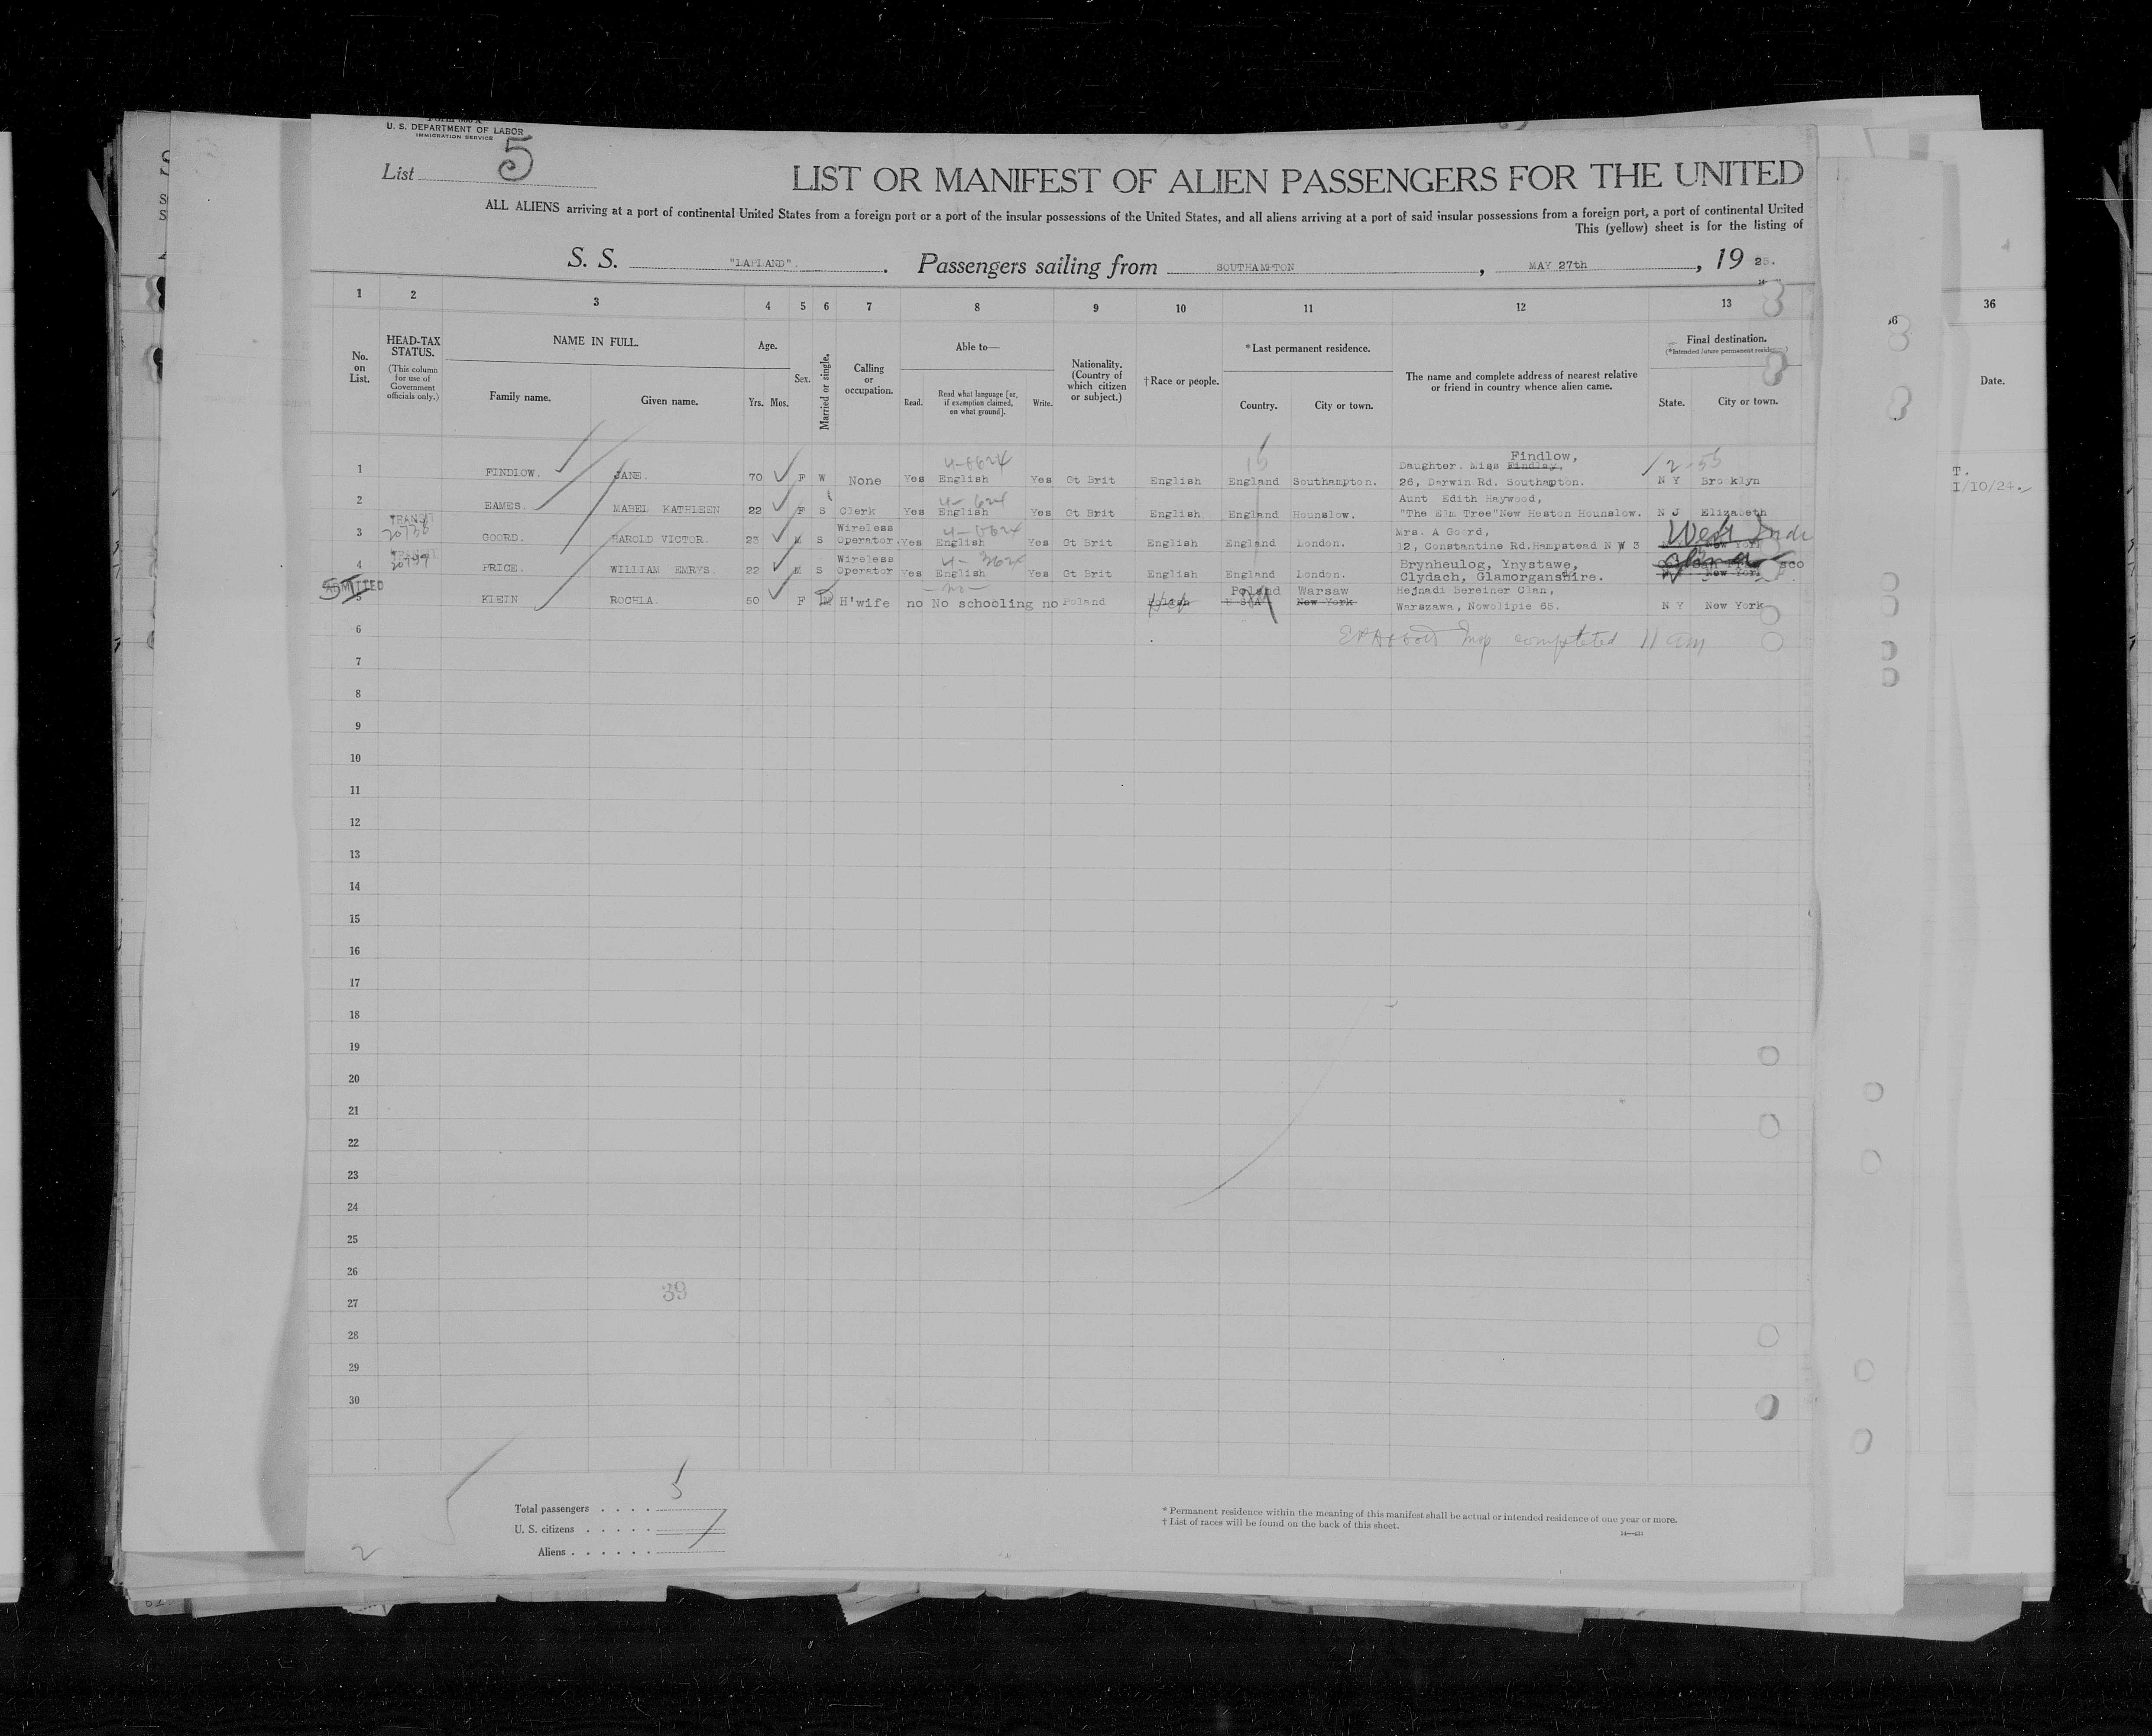 U. S. DEPARTMENT OF LABOR
IMMIGRATION SERVICE
List 5
LIST OR MANIFEST OF ALIEN PASSENGERS FOR THE UNITED
ALL ALIENS arriving at a port of continental United States from a foreign port or a port of the insular possessions of the United States, and all aliens arriving at a port of said insular possessions from a foreign port, a port of continental United
This (yellow) sheet is for the listing of
S. S. "LAPLAND". Passengers sailing from SOUTHAMPTON, MAY 27th, 19 25.
1 2 3 4 5 6 7 8 9 10 11 12 13
36
No. on List.
HEAD-TAX STATUS.
(This column for use of Government officials only.)
NAME IN FULL.
Family name. Given name.
Age.
Yrs. Mos.
Sex.
Married or single.
Calling or occupation.
Able to—
Read. Read what language [or, if exemption claimed, on what ground]. Write.
Nationality. (Country of which citizen or subject.)
†Race or people.
*Last permanent residence.
Country. City or town.
The name and complete address of nearest relative or friend in country whence alien came.
Final destination.
(*Intended future permanent residence.)
State. City or town.
Date.
Findlow,
1 FINDLOW. JANE. 70 F W None Yes English Yes Gt Brit English England Southampton. Daughter. Miss Findlay,
26, Darwin Rd. Southampton. N Y Bro klyn
2 EAMES. MABEL KATHLEEN 22 F S Clerk Yes English Yes Gt Brit English England Hounslow. Aunt Edith Haywood,
"The Elm Tree"New Heston Hounslow. N J Elizabeth
TRANSIT
3 GOORD. HAROLD VICTOR. 23 M S Wireless Operator. Yes English Yes Gt Brit English England London. Mrs. A Goord,
12, Constantine Rd.Hampstead N W 3 New York
TRANSIT
4 PRICE. WILLIAM EMRYS. 22 M S Wireless Operator Yes English Yes Gt Brit English England London. Brynheulog, Ynystawe,
Clydach, Glamorganshire. New York
ADMITTED
5 KLEIN ROCHLA. 50 F H'wife no No schooling no Poland Poland Warsaw
New York
Hejnadi Bereiner Clan,
Warszawa, Nowolipie 65. N Y New York
T.
1/10/24.
Insp completed 11 am
6
7
8
9
10
11
12
13
14
15
16
17
18
19
20
21
22
23
24
25
26
27
28
29
30
39
Total passengers . . . . 5
U. S. citizens . . . . .
Aliens . . . . . .
2
* Permanent residence within the meaning of this manifest shall be actual or intended residence of one year or more.
† List of races will be found on the back of this sheet.